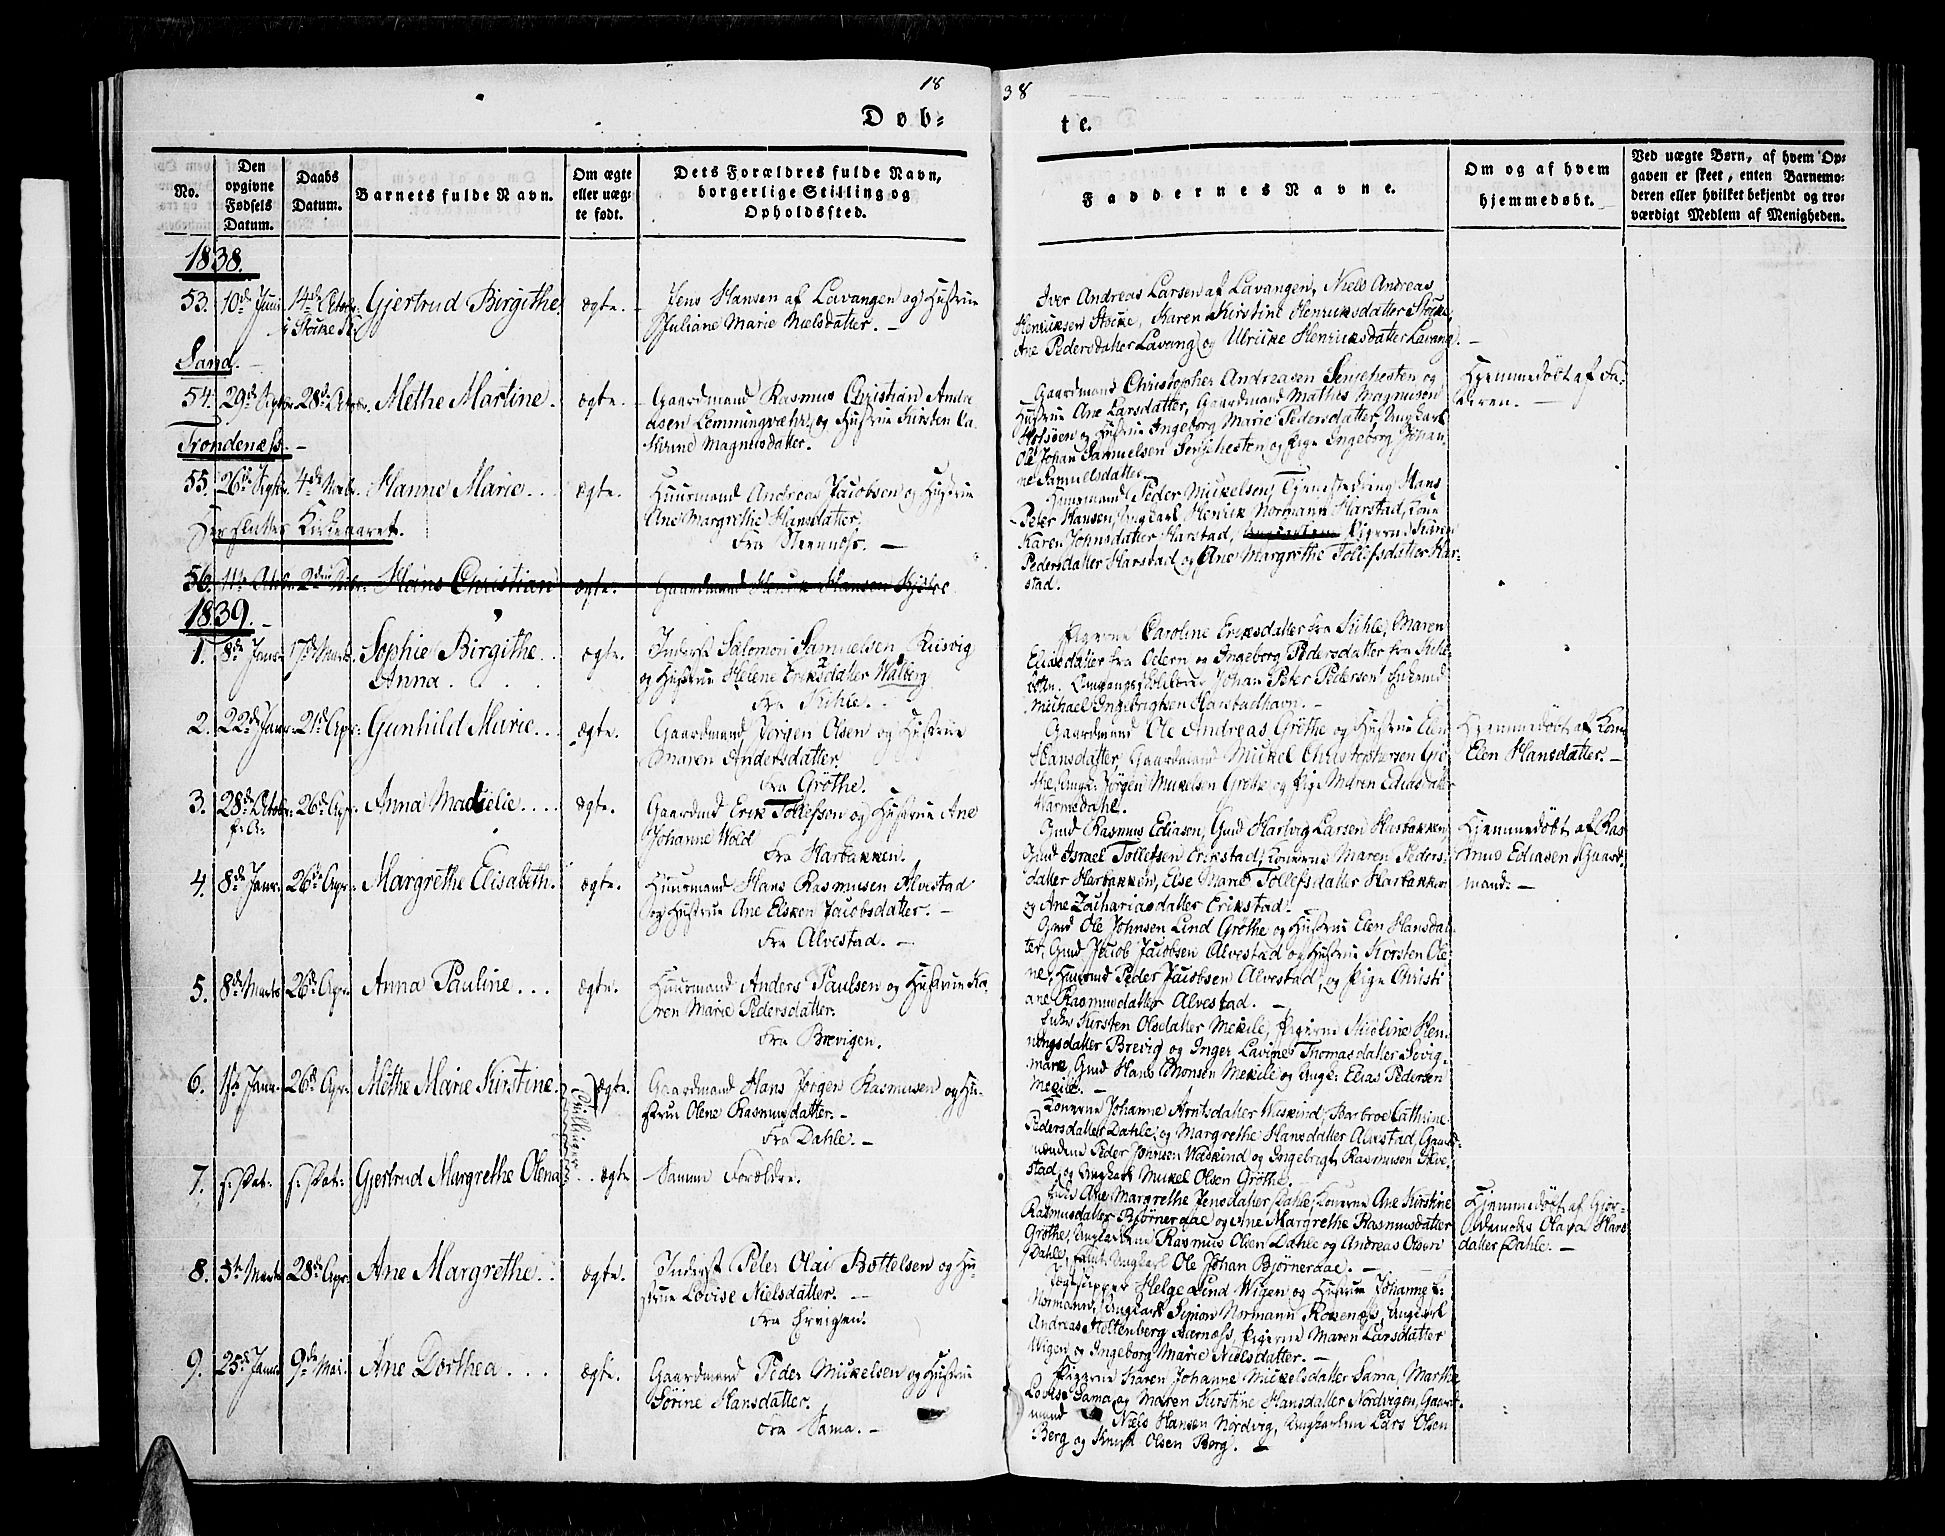 18
38
Døb=
te.
No.
Den
opgivne
Fødsels
Datum.
Daabs
Datum.
Barnets fulde Navn.
Om ægte
eller uæg-
te født.
Dets Forældres fulde Navn,
borgerlige Stilling og
Opholdssted.
Faddernes Navne.
Om og af hvem
hjemmedøbt.
Ved uægte Børn, af hvem Op-
gaven er skeet, enten Barnemo-
deren eller hvilket bekjendt og tro-
værdigt Medlem af Menigheden.
1838.
53. 10de Juni 14de Octobr: Gjertrud Birgithe ægte. Jens Hansen af Lavangen og Hustrue
Juliane Marie Nielsdatter. —
Iver Andreas Larsen af Lavangen, Niels Andreas
Henriksen Stocke, Karen Kirstine Henriksdatter Stocke,
Ane Pedersdatter Lavang og Ulricke Henriksdatter Lavang. —
Sand. —
54. 29de Septr. 28de Octobr. Methe Martine. ægte. Gaardmand Rasmus Christian Andre
asen Lemmingvæhr, og Hustrue Kirsten Ca
thrine Magnusdatter.
Gaardmand Christopher Andreasen Senjehesten og
Hustrue Ane Larsdatter, Gaardmand Mathis Magnusen
og Hustrue Ingeborg Marie Pedersdatter, Ungkarl
Ole Johan Samuelsen Senjehesten og Pige Ingeborg Johan
ne Samuelsdatter
Hjemmedøbt af Fa-
deren. —
Trondenæs. —
55. 26de Septr. 4de Novbr. Hanne Marie... ægte. Huusmand Andreas Jacobsen og Hustrue
Ane Margrethe Hansdatter,
Fra —
Huusmand Peder Mickelsen, Tjenestedreng Hans
Peter Hansen, Ungkarl Henrik Normann Harstad, Kone
Karen Johnsdatter Harstad, Pigerne Karen
Pedersdatter Harstad og Ane Margrethe Tollefsdatter Har-
stad.
Her slutter Kirkeaaret.
56. Hans Christian ægte. Gaardmand Hansen
1839. —
1. 8de Janr. 17de Marts. Sophie Birgithe
Anna. ægte. Inderst Salomon Samuelsen, Rusvig
og Hustrue Helene Eriksdatter Walberg
Fra Kihle.
Pigerne Caroline Eriksdatter fra Kihle, Maren
Eliasdatter fra og Ingeborg Pedersdatter fra Kihle-
botn. Johan Peter Pedersen
Michael Ingebrigtsen Harstadhavn. —
2. 22de Janr. 21de Apr: Gunhild Marie... ægte. Gaardmand Jørgen Olsen og Hustrue
Maren Andersdatter,
Fra Grøthe.
Gaardmand Ole Andreas Grøthe og Hustrue Elen
Hansdatter, Gaardmand Mickel Christophersen Grø-
the, Ungk: Jørgen Mickelsen Grøthe og Pige Maren Eliasdatter
Marmedahl.
Hjemmedøbt af Kone
Elen Hansdatter. —
3. 28de Octobr:
f: A: 26de Apr. Anna Madselie.... ægte. Gaardmd Erik Tollefsson og Hustrue Ane
Johanne Wold
Fra Harbakken.
Gmd Rasmus Ediasen, Gmd Hartvig Larsen Harbakken,
Gmd Israel Tollefsen Erikstad, Konerne Maren Peders-
datter Harbakken, Else Marie Tollefsdatter Harbakken
og Ane Zachariasdatter Erikstad.
Hjemmedøbt af Ras-
mus Ediasen Gaard-
mand. —
4. 8de Janr. 26de Apr: Margrethe Elisabeth. ægte. Huusmand Hans Rasmusen Alvestad
og Hustrue Ane Elsken Jacobsdatter. —
Fra Alvestad. —
Gmd Ole Johnsen Lind Grøthe og Hustrue Elen Hansdat-
ter, Gmd Jacob Jacobsen Alvestad og Hustrue Kirsten Ole
ne, Huusmd Peder Jacobsen Alvestad, og Pige Christi
ane Rasmusdatter Alvestad. —
5. 8de Marts 26de Apr. Anna Pauline... ægte. Huusmand Anders Paulsen og Hustrue Ka-
ren Marie Pedersdatter.
Fra Brevigen.
Enke Kirsten Olsdatter Mekile, Pigerne Nicoline Hen-
ningsdatter Brevig og Inger Lavine Thomasdatter Sevig-
mark, Gmd Hans Monsen Mekile og Ungk: Elias Pedersen
Mekile. —
6. 1ste Janr. 26de Apr: Methe Marie Kirstine Tvillinger ægte. Gaardmand Hans Jørgen Rasmusen og Hu-
strue Olene Rasmusdatter. —
Fra Dahle. —
Konerne Johanne Arntsdatter Waskind, Barbroe Cathrine
Pedersdatter Dahle, og Margrethe Hansdatter Aunstad, Gaard-
mændene Peder Johnsen Waskind og Ingebrigt Rasmusen Alve-
stad, og Ungkarl Mickel Olsen Grøthe.
7. f. Dat: f. Dat: Gjertrud Margrethe Olena ægte Samme Forældre.
Enke Ane Margrethe Jensdatter Dahle, Konerne Ane Kirstine
Rasmusdatter Bjørnerdae og Ane Margrethe Rasmusdatter
Grøthe, Ungkarlene Rasmus Olsen Dahle og Andreas Olsen
Dahle, samt Ungkarl Ole Johan Bjørnerdae. —
Hjemmedøbt af Gjor-
demoder Olava Hans-
datter Dahle. —
8. 5te Marts 28de Apr. Ane Margrethe... ægte. Inderst Peter Olai Bottelsen og Hu-
strue Lovise Nielsdatter. —
Fra Ervigen.
Helge Lund Wigen og Hustrue Johanne f:
Normann, Ungkarl Simon Normann Rokenæss, Ungkarl
Andreas Heltenberg Aarnæss, Pigerne Maren Larsdatter
Wigen og Ingeborg Marie Nielsdatter. —
9. 25de Janr. 9de Mai. Ane Dorthea.... ægte. Gaardmand Peder Mickelsen og Hustrue
Sørine Hansdatter.
Fra Sama. —
Pigerne Karen Johanne Mickelsdatter Sama, Marthe
Lovise Sama og Maren Kirstine Hansdatter Nordvigen, Gaard-
mand Niels Hansen Nordvig, Ungkarlene Lars Olsen
Berg og Knud Olsen Berg. —